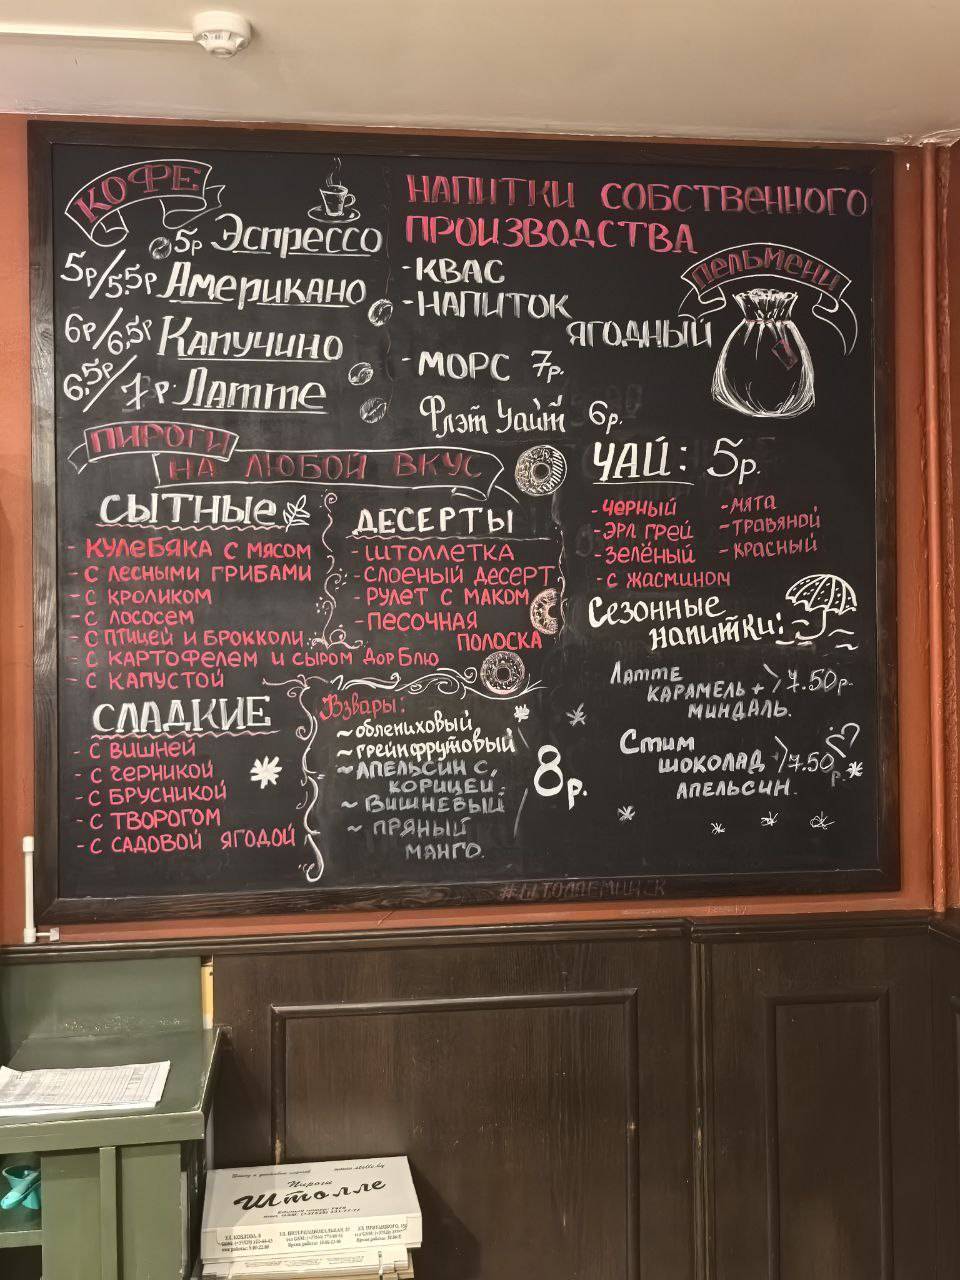 КОФЕ
5р Эспрессо
5р/5.5р Американо
6р/6,5р Капучино
6,5р/7р. Латте
НАПИТКИ СОБСТВЕННОГО
ПРОИЗВОДСТВА
- КВАС
- НАПИТОК
ЯГОДНЫЙ
- МОРС 7р.
Флэт Уайт 6р.
ПЕЛЬМЕНИ
ПИРОГИ
НА ЛЮБОЙ ВКУС
СЫТНЫЕ
- КУЛЕБЯКА С МЯСОМ
- С ЛЕСНЫМИ ГРИБАМИ
- С КРОЛИКОМ
- С ЛОСОСЕМ
- С ПТИЦЕЙ И БРОККОЛИ
- С КАРТОФЕЛЕМ И СЫРОМ ДОРБЛЮ
- С КАПУСТОЙ
ДЕСЕРТЫ
- ШТОЛЛЕТКА
- СЛОЕНЫЙ ДЕСЕРТ
- РУЛЕТ С МАКОМ
- ПЕСОЧНАЯ
ПОЛОСКА
ЧАЙ: 5р.
- ЧЕРНЫЙ
- ЭРЛ ГРЕЙ
- ЗЕЛЁНЫЙ
- С ЖАСМИНОМ
- МЯТА
- ТРАВЯНОЙ
- КРАСНЫЙ
СЛАДКИЕ
- С ВИШНЕЙ
- С ЧЕРНИКОЙ
- С БРУСНИКОЙ
- С ТВОРОГОМ
- С САДОВОЙ ЯГОДОЙ
Взвары:
~ облепиховый
~ грейпфрутовый
~ АПЕЛЬСИН С
КОРИЦЕЙ
~ ВИШНЕВЫЙ
~ ПРЯНЫЙ
МАНГО.
8р.
Сезонные
напитки:
ЛАТТЕ
КАРАМЕЛЬ + 7.50р.
МИНДАЛЬ.
СТИМ
ШОКОЛАД + 7.50р.
АПЕЛЬСИН.
#ШТОЛЛЕМИНСК
www.stolle.by
Пироги
Штолле